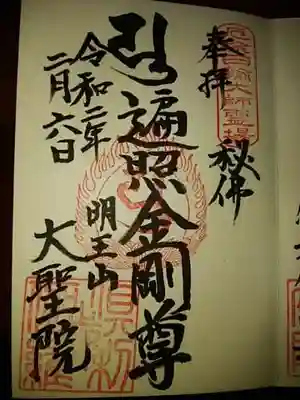 奉拝
秘佛
遍照金剛尊
令和二年
二月六日
明王山
大聖院